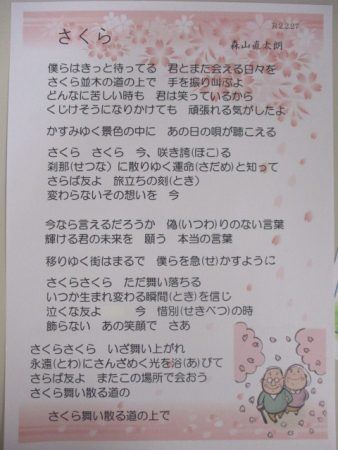 R2.2.27
さくら
森山直太朗
僕らはきっと待ってる　君とまた会える日々を
さくら並木の道の上で　手を振り叫ぶよ
どんなに苦しい時も　君は笑っているから
くじけそうになりかけても　頑張れる気がしたよ
かすみゆく景色の中に　あの日の唄が聴こえる
さくら　さくら　今、咲き誇(ほこ)る
刹那(せつな）に散りゆく運命(さだめ)と知って
さらば友よ　旅立ちの刻(とき)
変わらないその想いを　今
今なら言えるだろうか　偽(いつわ)りのない言葉
輝ける君の未来を　願う　本当の言葉
移りゆく街はまるで　僕らを急(せ)かすように
さくらさくら　ただ舞い落ちる
いつか生まれ変わる瞬間(とき)を信じ
泣くな友よ　　　今　惜別(せきべつ)の時
飾らない　あの笑顔で　さあ
さくらさくら　いざ舞い上がれ
永遠(とわ)にさんざめく光を浴(あ)びて
さらば友よ　またこの場所で会おう
さくら舞い散る道の
さくら舞い散る道の上で